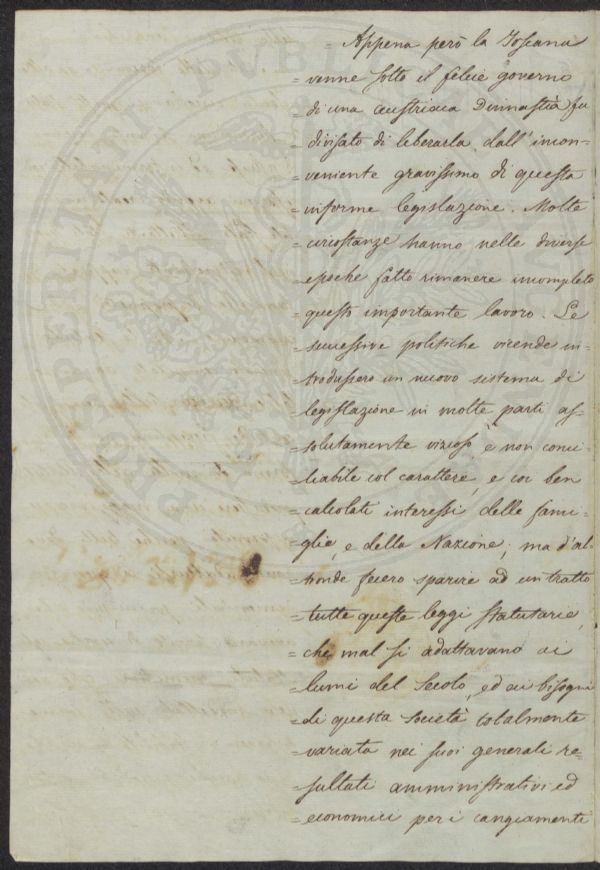 = Appena però la Toscana
= venne sotto il felice governo
= di una austriaca Divinastia fu
= divisato di liberarla dall'incon=
= veniente gravissimo di questa
= informe legislazione. Molte
= circostanze hanno nelle diverse
= epoche fatto rimanere incompleto
= questo importante lavoro. Le
= successive politiche vicende in=
= trodussero un nuovo sistema di
= legislazione in molte parti as=
= solutamente vizioso, e non conci=
= liabile col carattere, e coi ben
= calcolati interessi delle fami=
= glie, e della Nazione; ma d'al=
= tronde fecero sparire ad un tratto
= tutte queste leggi statutarie,
= che mal si adattavano ai
= lumi del Secolo, ed ai bisogni
= di questa società totalmente
= variata nei suoi generali re=
= sultati amministrativi ed
= economici per i cangiamenti